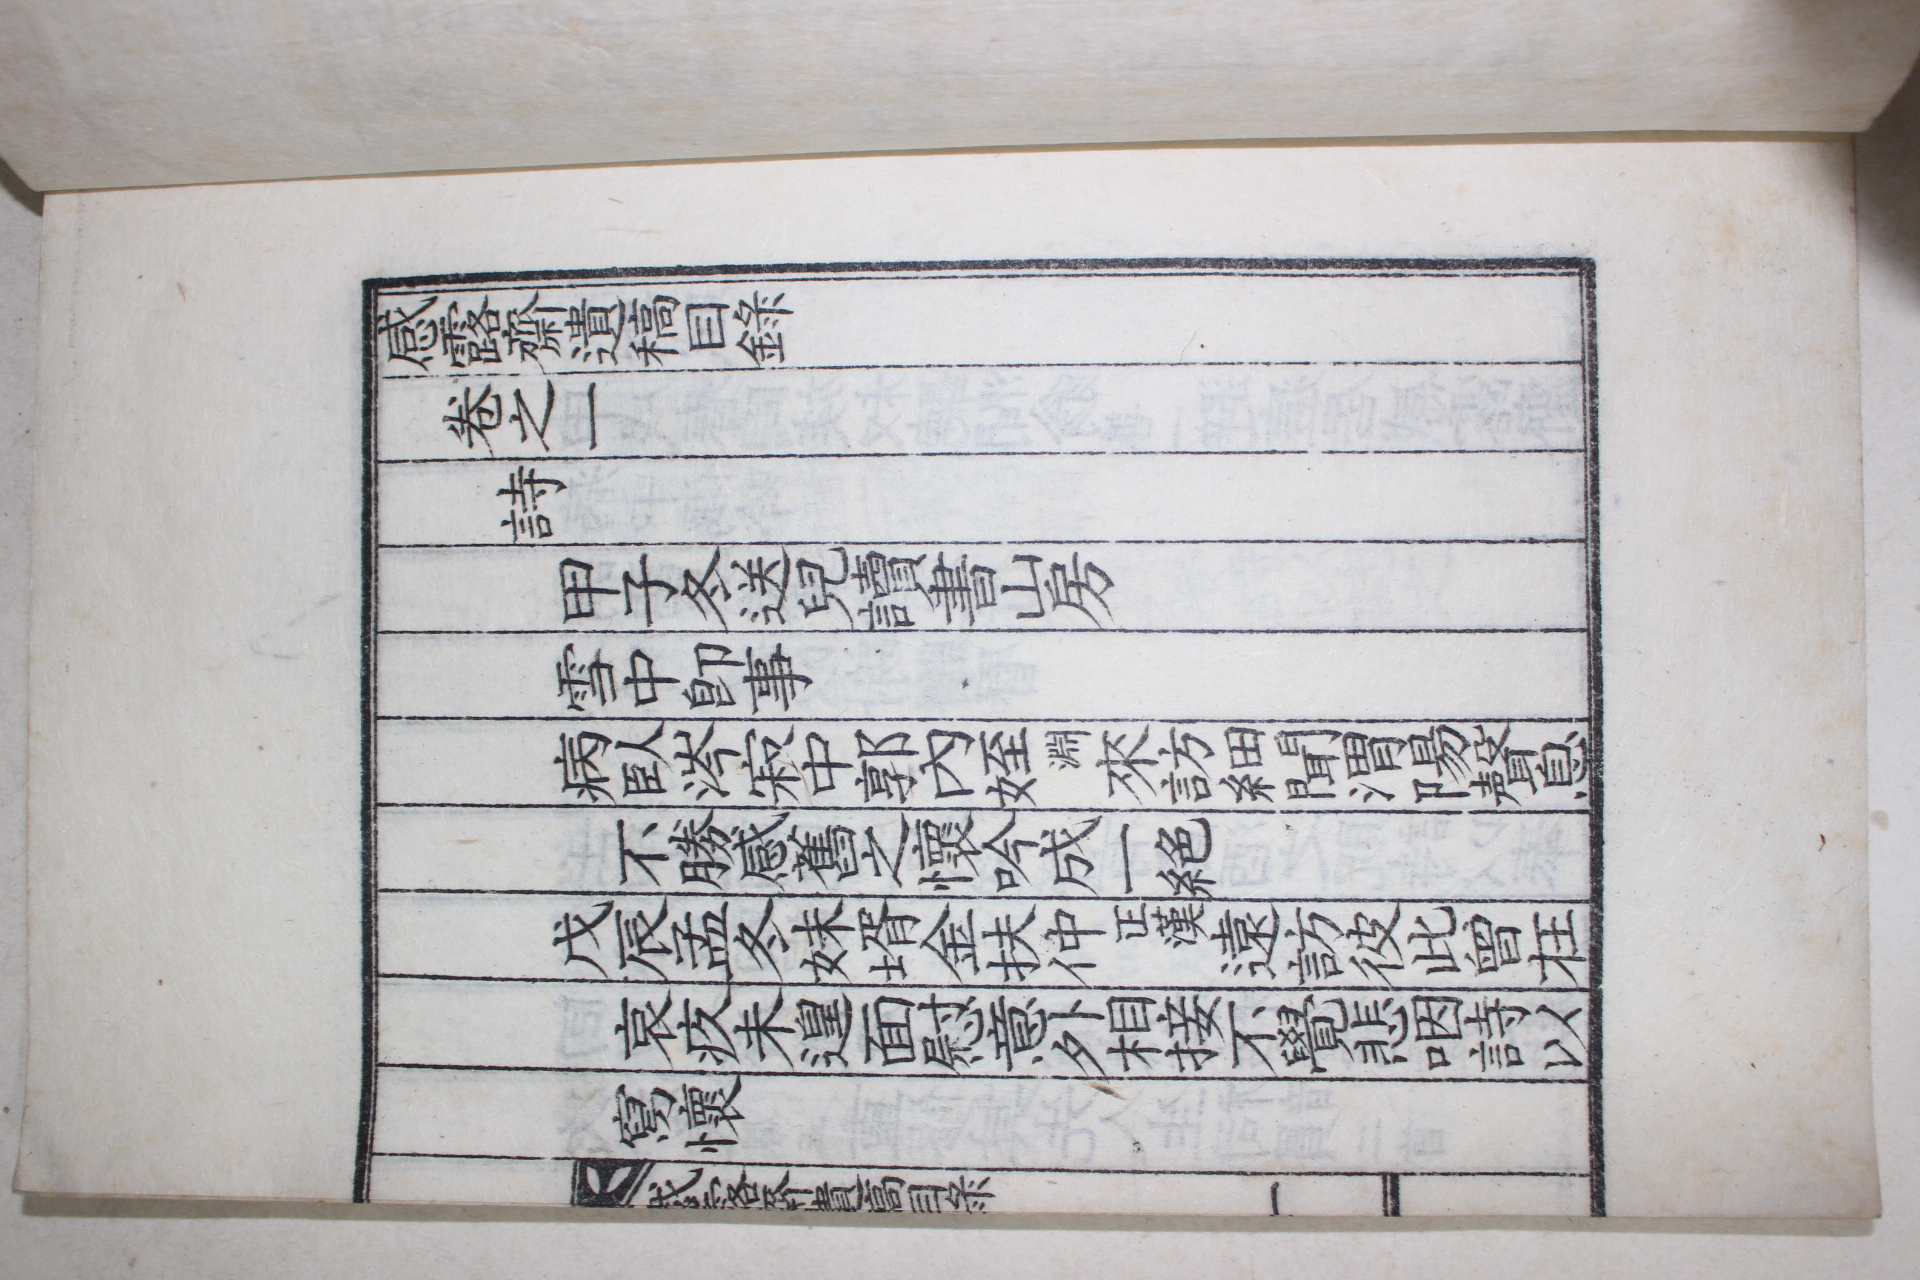 感露齋遺稿目錄
卷之一
詩
甲子冬送兒讀書山房
雪中卽事
病臥涔寂中郭內姪淵來訪細聞渭陽設饗息
不勝感舊之懷吟成一絕
戊辰孟冬妹壻金扶仲正漢遠訪彼此曾在
哀疚未遑面慰意外相接不覺悲咽詩以
寫懷
感露齋遺稿目錄 一